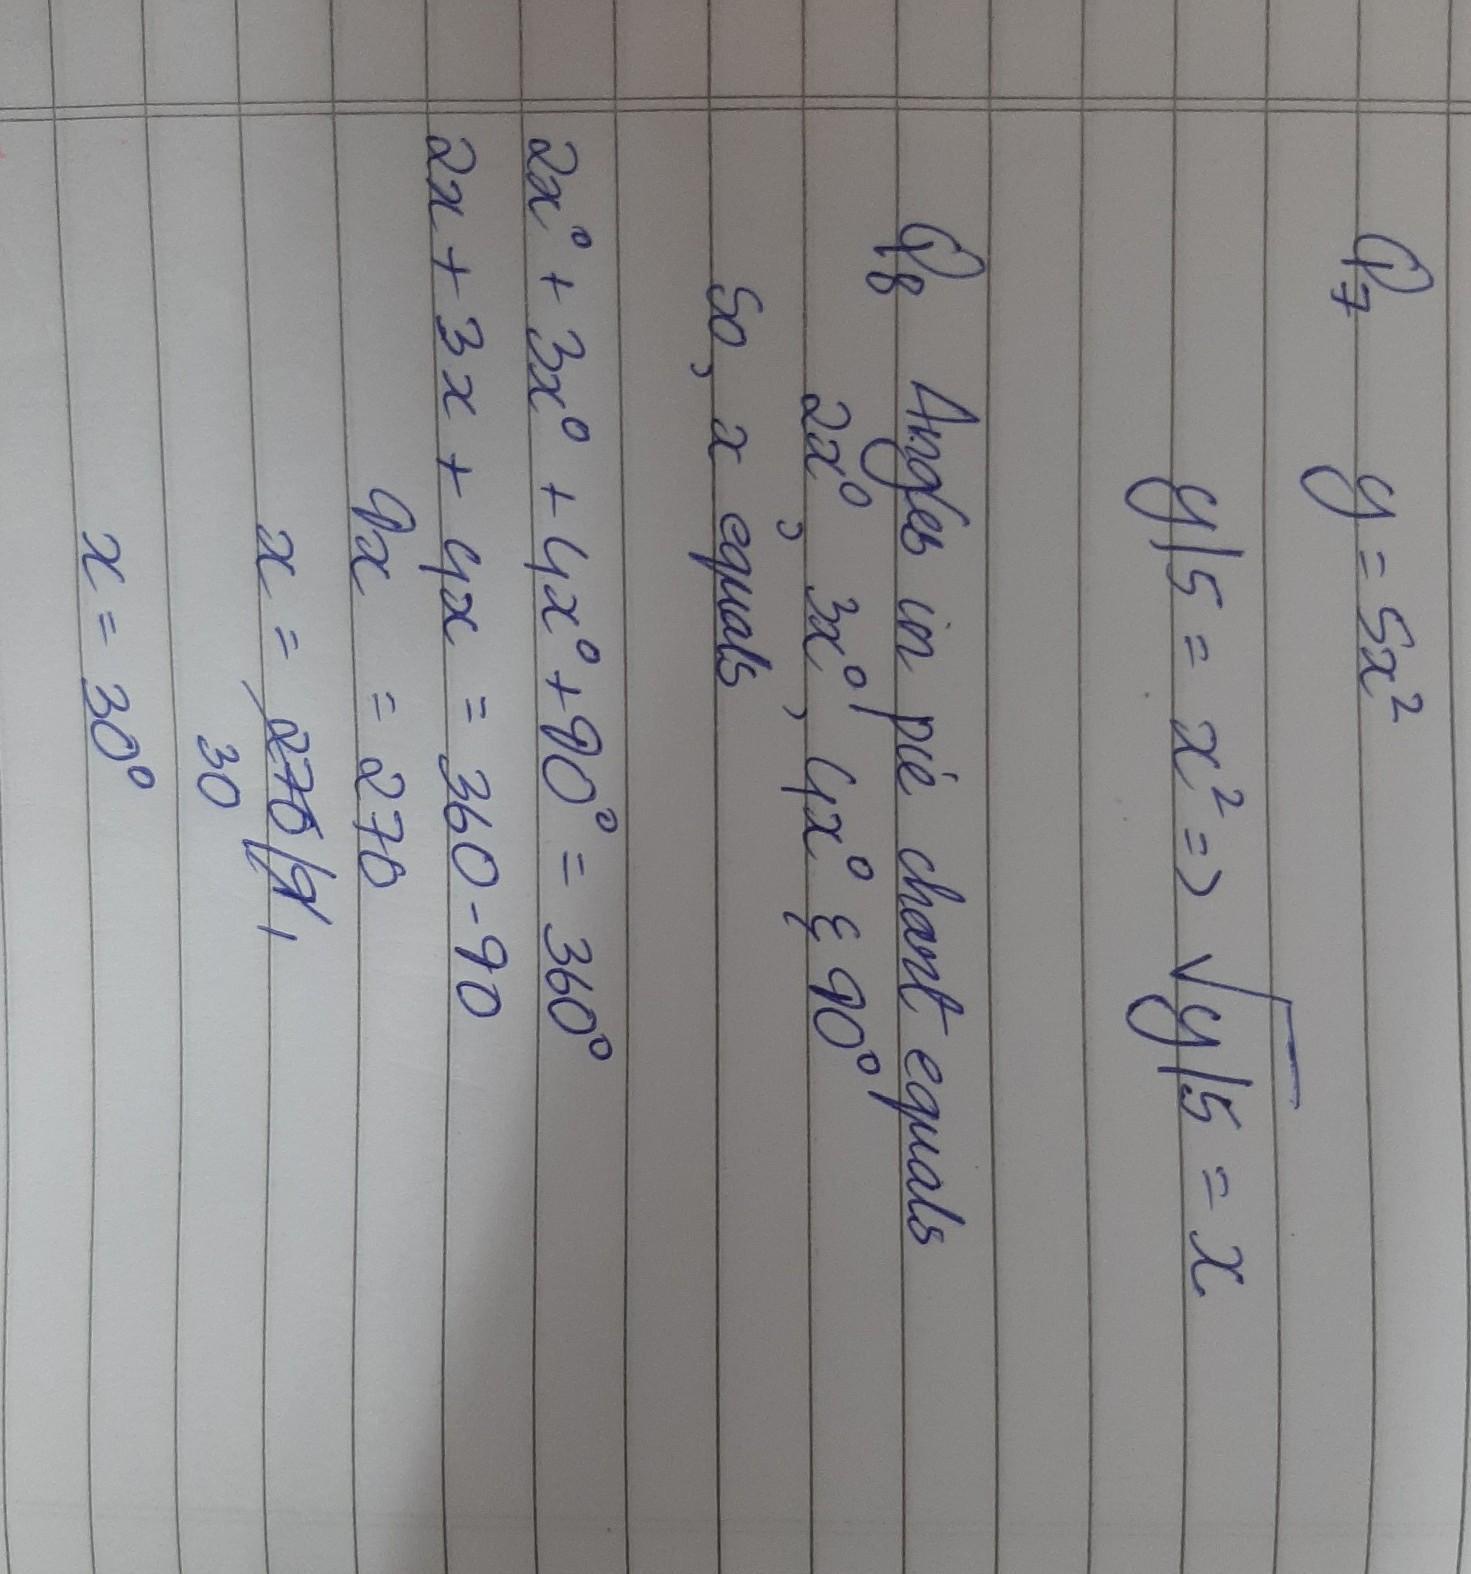 Q7 y = 5x²
y/5 = x² => √y/5 = x
Q8 Angles in pie chart equals
2x°, 3x°, 4x° & 90°
So, x equals
2x° + 3x° + 4x° + 90° = 360°
2x + 3x + 4x = 360 - 90
9x = 270
x = 270/9 1
30
x = 30°